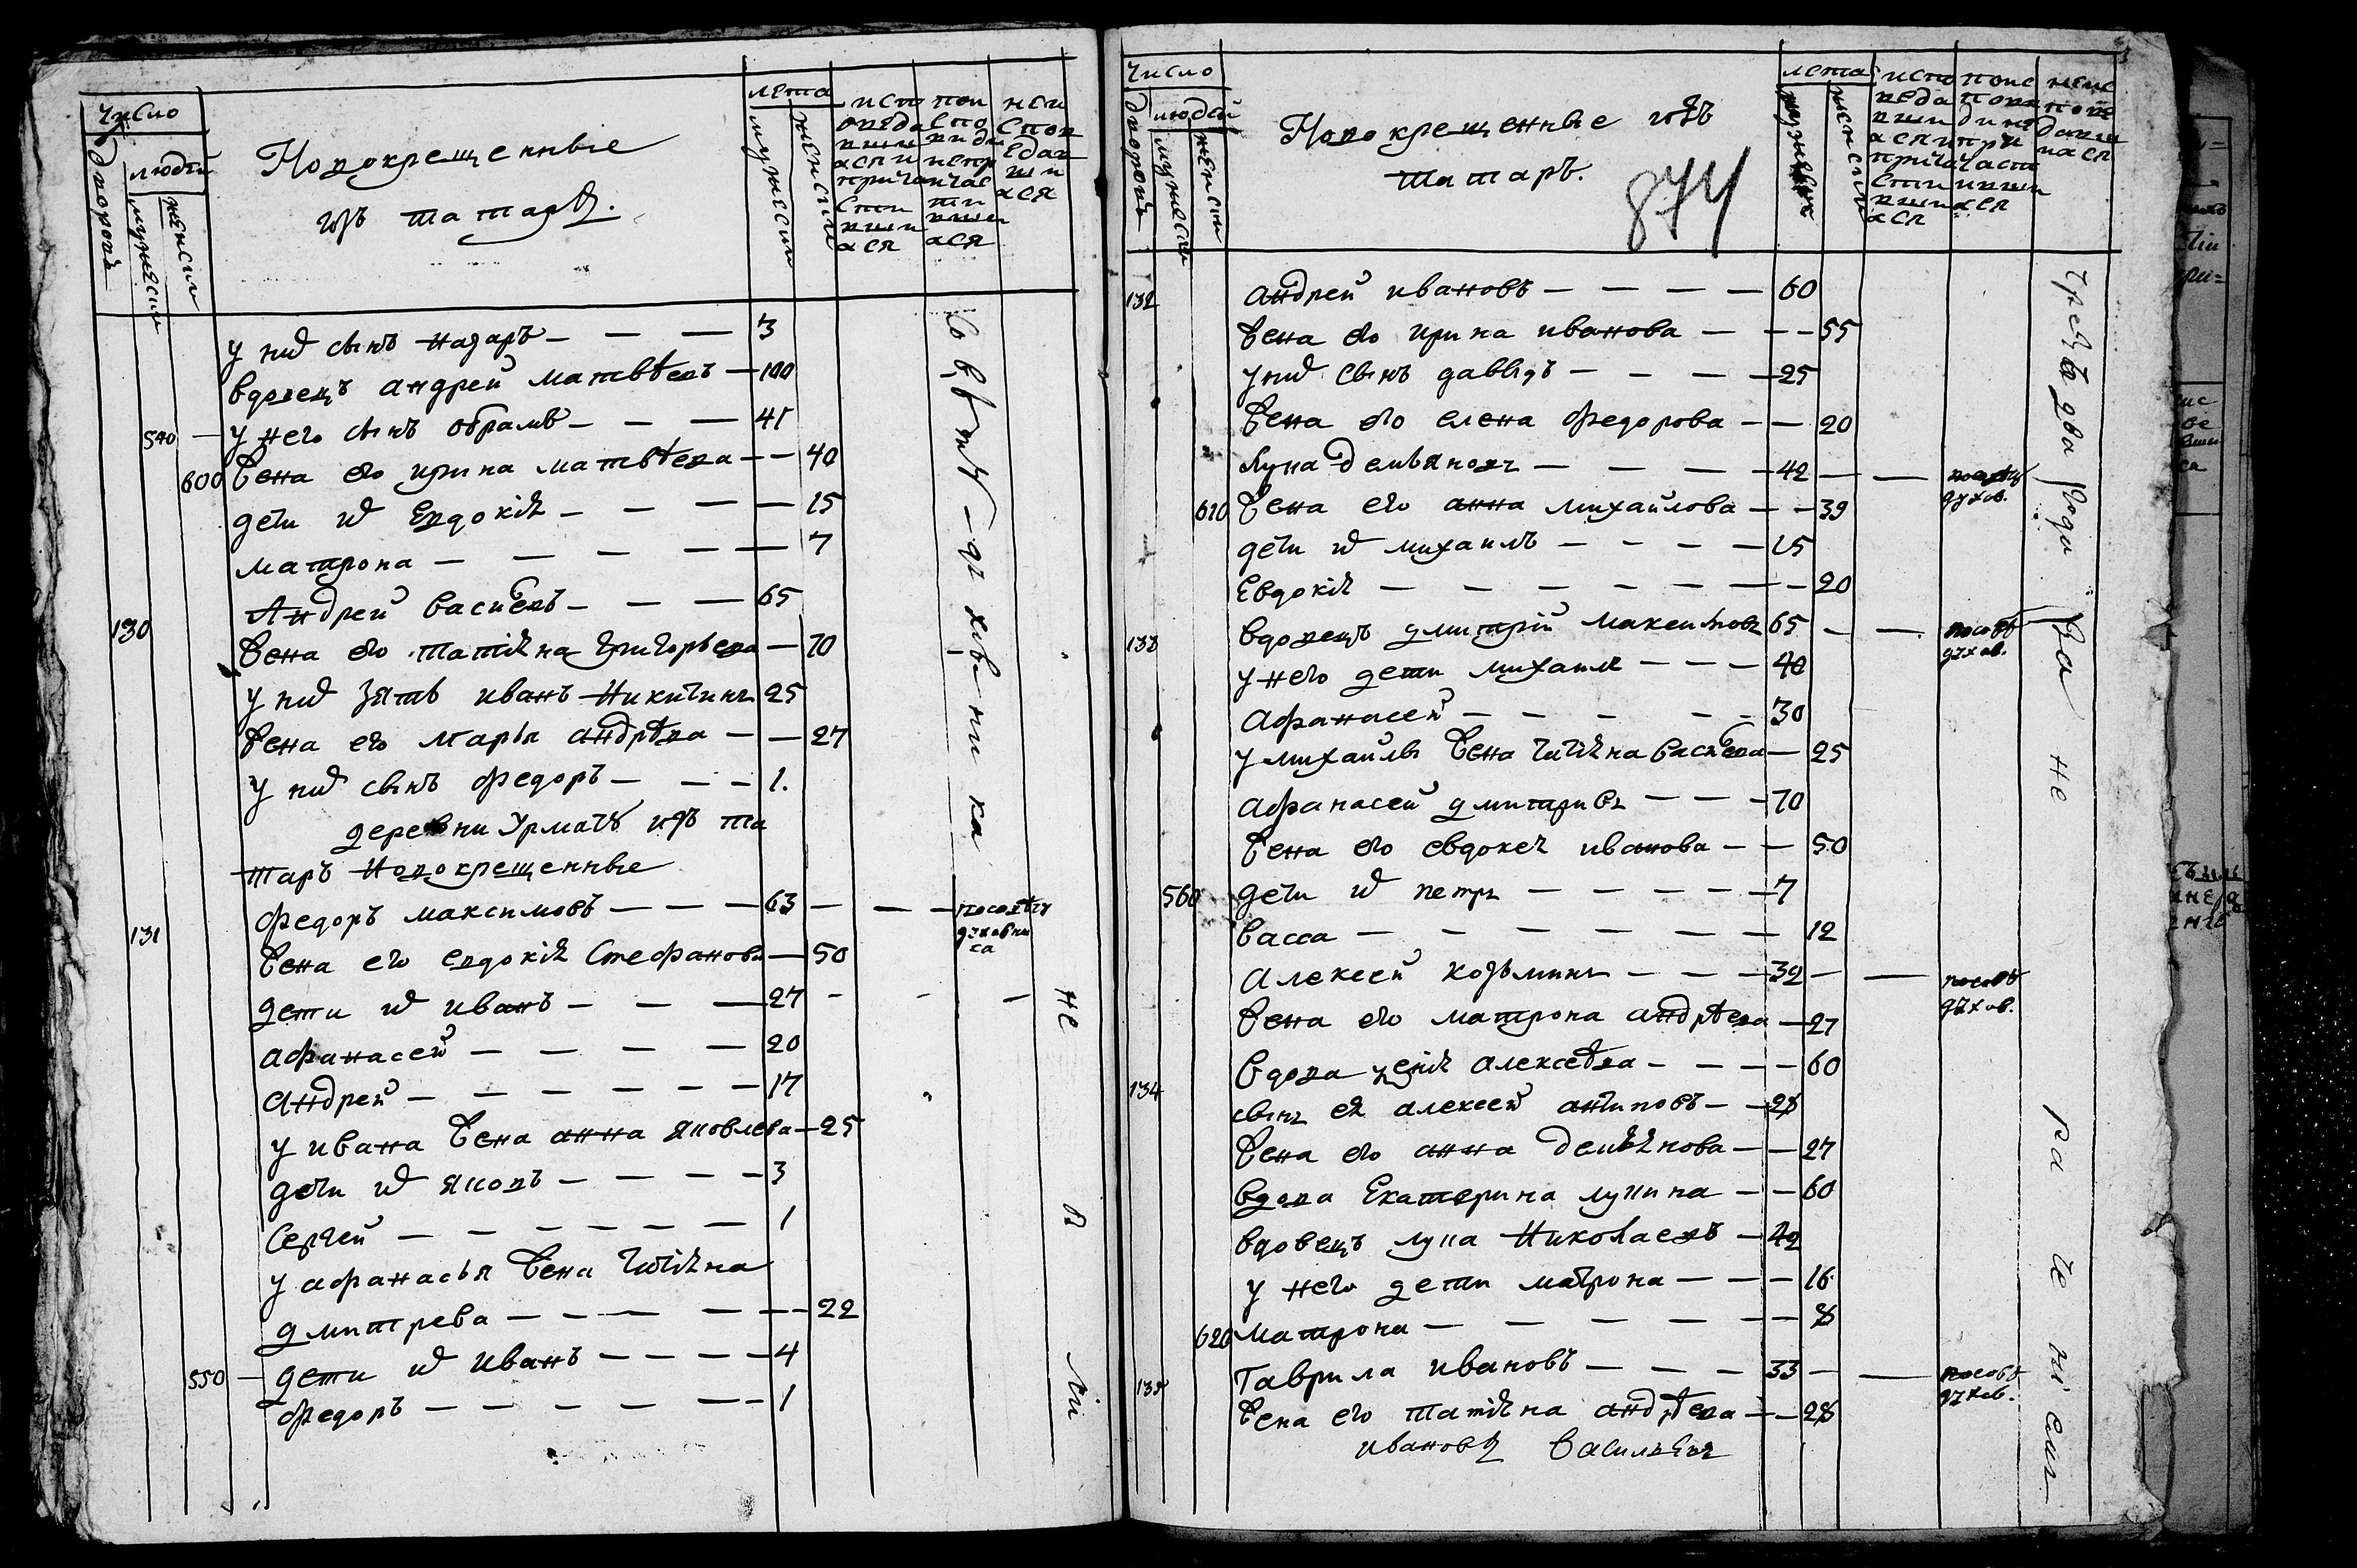 число
дворовъ
людей
мужеска
женска
Новокрещенные
изъ татаръ.
лета
мужеска
женска
исповедавшиася и причастившиася
неисповедавшиася
у них сынъ Назаръ — — — 3
вдовецъ андрей матвѣевъ — 100
540 — у него сынъ абрамъ — — — 41
600 Жена его ирина матвѣева — — 40
дети их Евдокия — — — — 15
матрона — — — — — 7
130 Андрей Васильевъ — — — 65
Жена его татияна григорьева — 70
у них зять иванъ Никитинъ 25
Жена его марья андрѣева — — 27
у них сынъ федоръ — — — 1.
деревни Урматъ изъ та
таръ Новокрещенные
131 федоръ максимовъ — — — 63 — — — посоветѣ духовника
Жена его евдокия Стефанова — 50
дети их иванъ — — — 27 - - —
афанасей — — — — 20
андрей — — — — — — 17
у ивана Жена анна яковлева — 25
дети их яковъ — — — — 3
Сергей — — — — — — 1
у афанасья Жена татияна
дмитрева — — — — — — 22
550 — дети их иванъ — — — — 4
федоръ — — — — — — 1
духовника
не
число
дворовъ
людей
мужеска
женска
Новокрещенные изъ
татаръ.
874
лета
мужеска
женска
132 андрей ивановъ — — — — 60
Жена его ирина иванова — — — 55
у них сынъ давыдъ — — — — 25
Жена его елена федорова — — 20
лука демьяновъ — — — — 42 — — посовѣ духов.
610 Жена его анна михайлова — — 39
дети их михаилъ — — — — 15
Евдокия — — — — — — — 20
133 вдовецъ дмитрий максимовъ 65 — — посовѣ духов.
у него дети михаилъ — — — 40
афанасей — — — — — 30
у михаилы Жена татияна Васильева — 25
афанасей дмитриевъ — — — 70
Жена его евдокея иванова — — 50
560 дети их петръ — — — — — 7
васса — — — — — — — 12
алексей козьминъ — — — 32 — — посовѣ духов.
Жена его матрона андрѣева — 27
134 вдова алексеѣва — — — — 60
сынъ ея алексей антиповъ — — 28
Жена его анна демьянова — — 27
вдова Екатерина лукина — — 60
вдовецъ лука Николаевъ — 42
у него дети матрона — — — 16
620 матрона — — — — — — 8
135 Гаврила ивановъ — — — 33 — — посовѣ духов.
Жена его татияна андрѣева — — 28
ивановъ Васильевъ
чрезъ два года
не